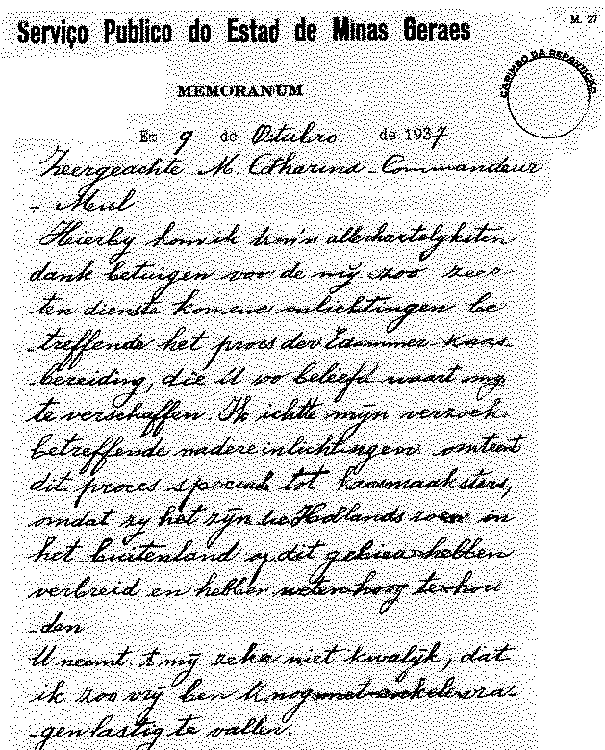 M. 27
Serviço Publico do Estad de Minas Geraes
CARIMBO DA REPARTIÇÃO
MEMORANUM
Em 9 de Otubro de 1937
Zeergeachte M. Catharina - Commandeur
- Meul
Hierby kom ik hartelyksten
dank betuigen voor de mij zoo zeer
ten dienste komene inlichtingen be
treffende het proces der Edammer kaas
bereiding, die U zo beleefd waart my
te verschaffen. Ik richtte mijn verzoek
betreffende nadere inlichtingen omtrent
dit proces speciaal tot kaasmaaksters,
omdat zy het zijn die Hollands roem in
het buitenland op dit gebied hebben
verbreid en hebben weten hoog te hou
-den
U neemt 't mij zeker niet kwalijk, dat
ik zoo vrij ben U nog met enkele vra-
gen lastig te vallen.